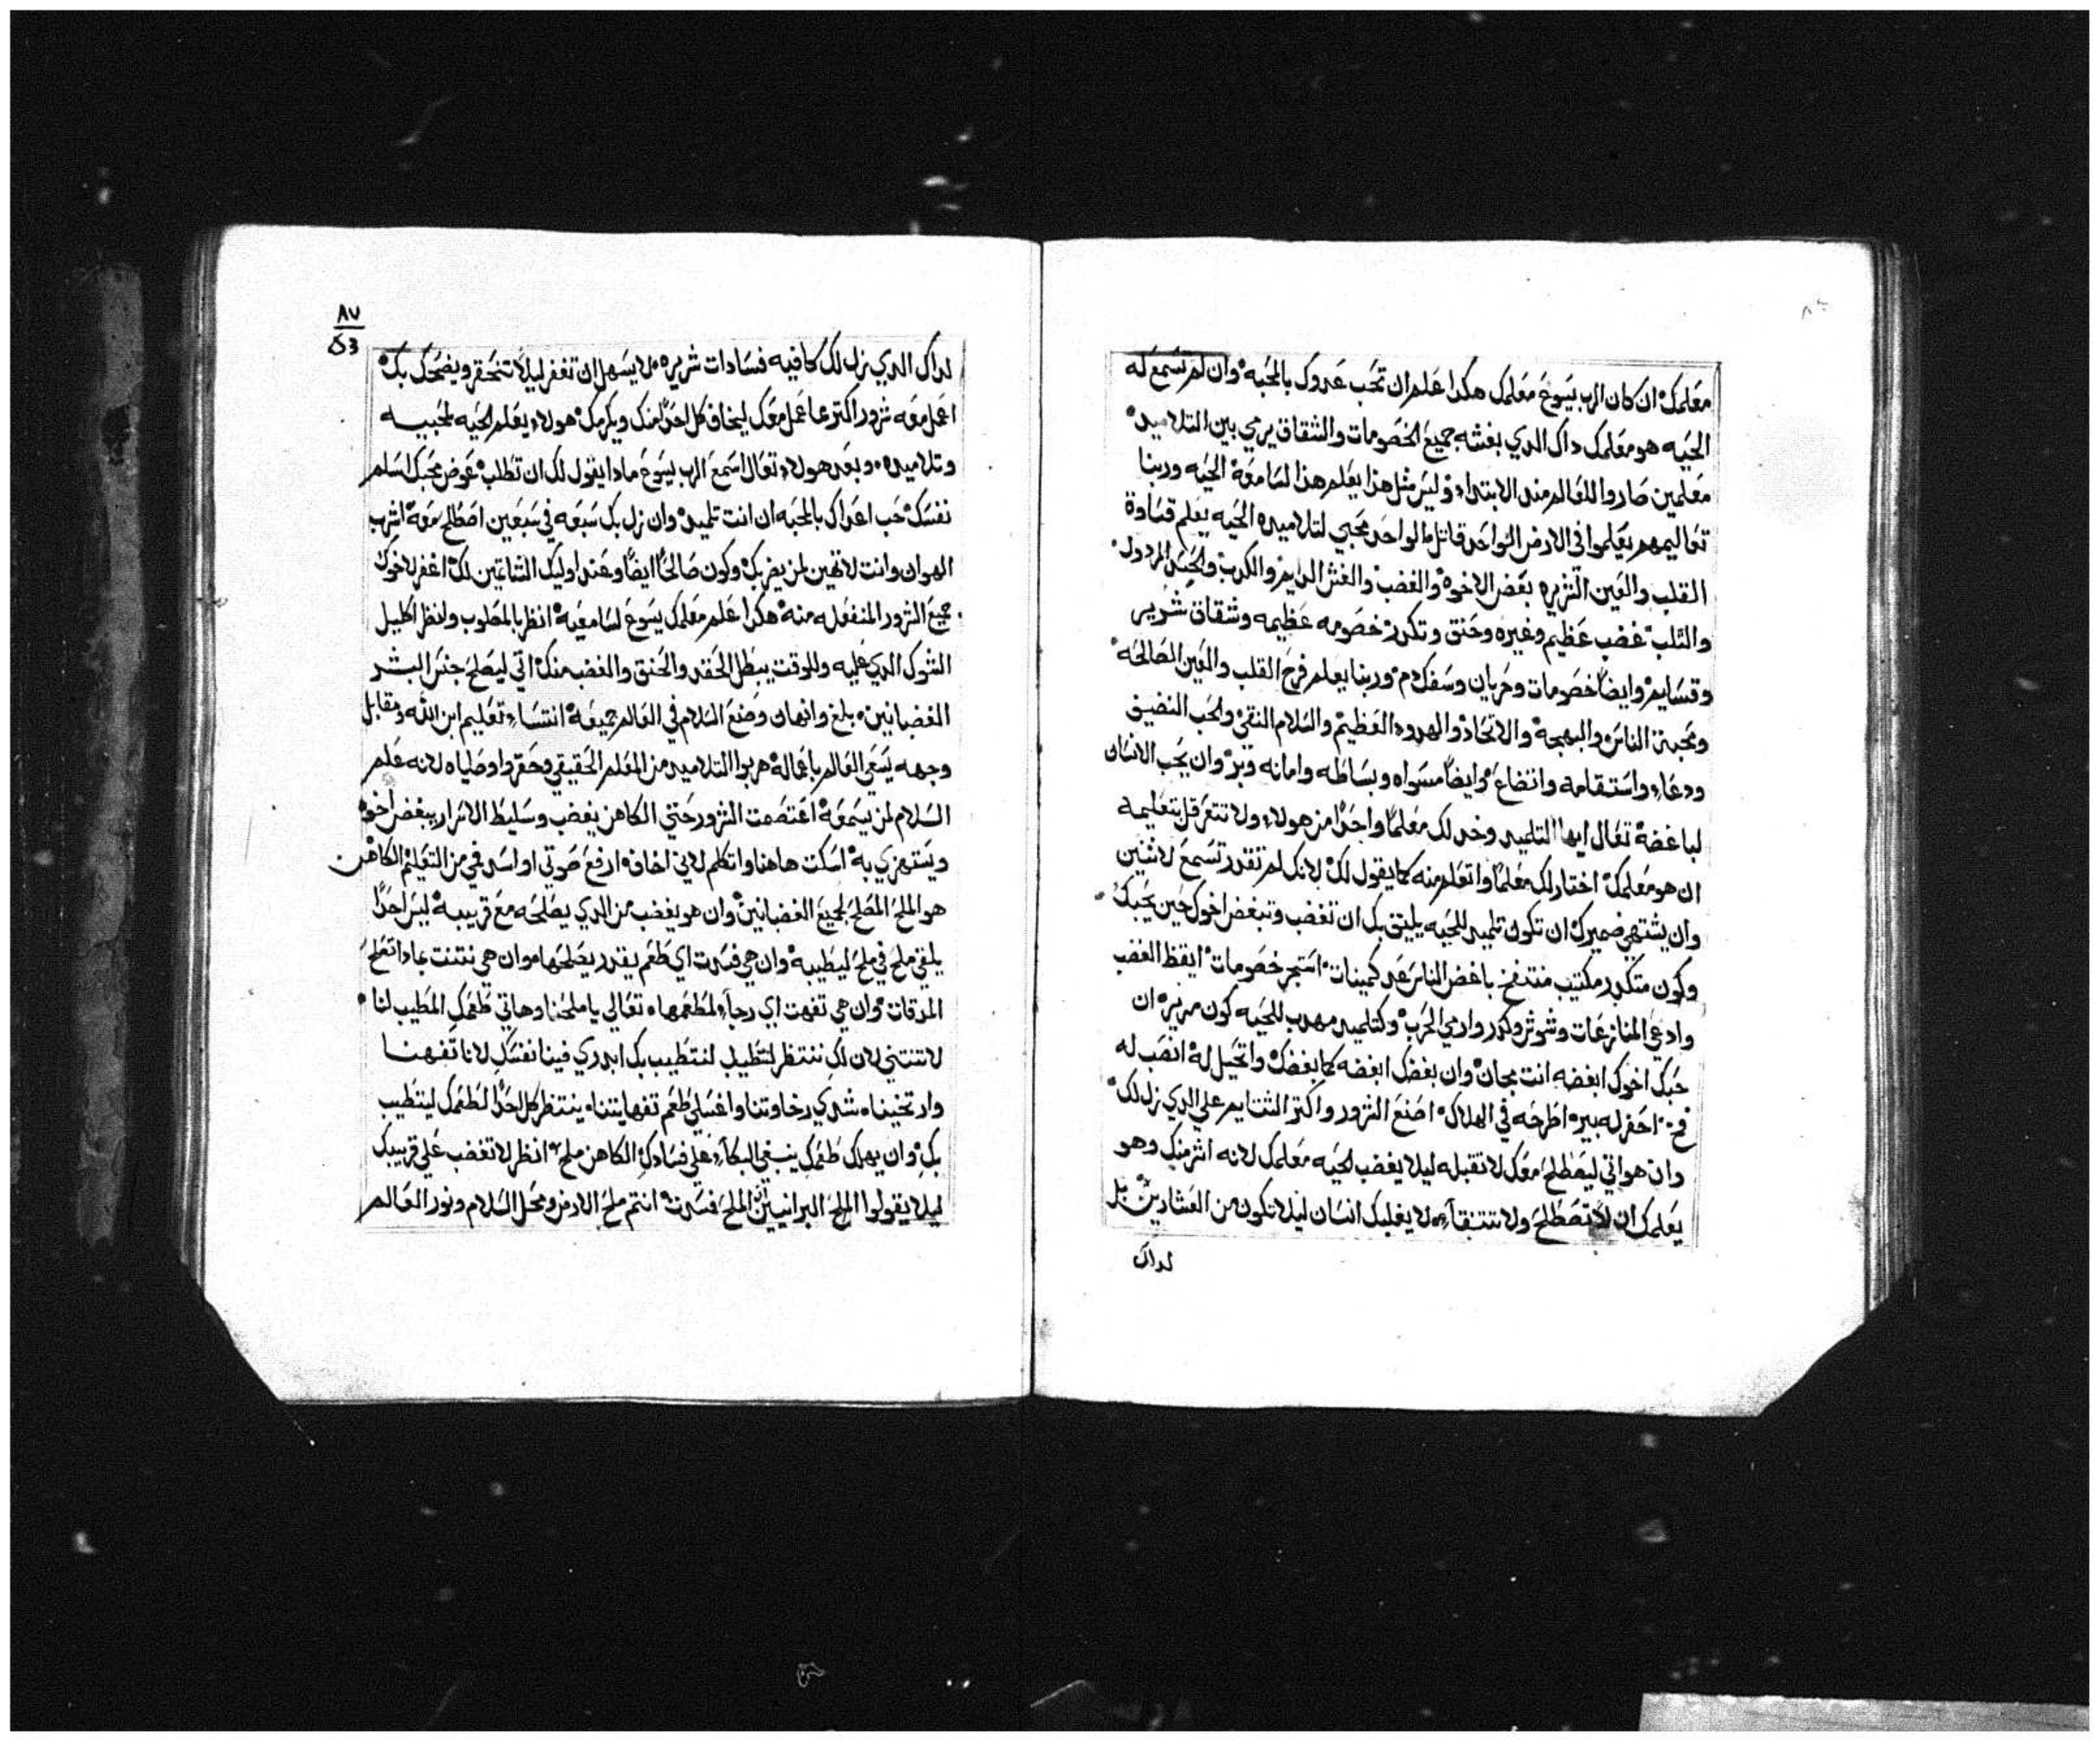 معلمك ان كان الرب يسوع معلمك هكدا علم ان تحب عدوك بالمحبه وان لم تسمع له
الحيه هو معلمك داك الدي بغشه جميع الخصومات والشقاق يرمي بين التلاميد
معلمين صاروا للعالم مند الابتداء وليس مثل هذا يعلم هذا لسامعة الحيه وربنا
تعاليمهم يعلموا في الارض الواحد قاتل والواحد محيي لتلاميده الحيه يعلم قساوة
القلب والعين الشريره بغض الاخوه والغضب والغش الدايم والكدب والحسد المردول
والثلب غضب عظيم وغيره وحنق وتكدر خصومه عظيمه وشقاق شرير
وقسايم وايضاً خصومات وحربان وسفك دم وربنا يعلم فرح القلب والعين الصالحه
ومحبة الناس والبهجه والاتحاد والهدوء العظيم والسلام النقي والحب النضيف
ودعاء واستقامه واتضاع وايضاً مسواه وبساطه وامانه وبر وان يحب الانسان
لباغضه تعال ايها التلميد وخد لك معلماً واحداً من هولاء ولا تتعرقل بتعليمه
ان هو معلمك اختار لك معلماً واتعلم منه كما يقول لك لانك لم تقدر تسمع لاثنين
وان يشتهي ضميرك ان تكون تلميد للحيه يليق بك ان تغضب وتبغض اخوك حين يحبك
وكون متكدر مكتيب منتفخ باغض الناس عد كمينات استجر خصومات ايقظ الغضب
وادعي المنازعات وشوش وكدر وارمي الحرب وكتلميد مهدب للحيه كون مرير ان
حبك اخوك ابغضه انت مجان وان بغضك ابغضه كما بغضك واتحيل له انصب له
فخ احفر له بير اطرحه في الهلاك اصنع الشرور واكتر الشتايم علي الدي زل لك
وان هو اتي ليصطلح معك لا تقبله ليلا يغضب الحيه معلمك لانه اشر منك وهو
يعلمك ان لا تصطلح ولا تتنقاء لا يغلبك انسان ليلا تكون من العشارين بل
لداك
٨٧
لداك الدي زل لك كافيه فسادات شريره لا يسهل ان تغفر ليلا تتحقر ويضحك بك
اعمل معه شرور اكتر مما عمل معك ليخاف كل احداً منك ويكرمك هولاء يعلم الحيه لمحبيه
وتلاميده وبعد هولاء تعال اسمع الرب يسوع مادا يقول لك ان تطلب عوض محبك اسلم
نفسك حب اعداك بالمحبه ان انت تلميد وان زل بك سبعه في سبعين اصطلح معه اشرب
الهوان وانت لا تهين لمن يضربك وكون صالحاً ايضاً وعند اوليك الشاتمين لك اغفر لاخوك
جميع الشرور المنفعله منه هكدا علم معلمك يسوع لسامعيه انظر بالمصلوب ولنظر اكليل
الشوك الدي عليه وللوقت يبطل الحقد والحنق والغضب منك اتي ليصلح جنس البشر
الغضبانين بلغ وانهان وصنع السلام في العالم جميعه انتساء تعليم ابن الله ومقابل
وجهه يسعي العالم باعماله هربوا التلاميد من المعلم الحقيقي وحقروا وصاياه لانه علم
السلام لمن يسمعه اعتصمت الشرور حتي الكاهن يغضب وسليط الاسرار يبغض اخوه
ويستهزي به اسكت هاهنا واتكلم لاني اخاف ارفع صوتي او اسد في من التعليم الكاهن
هو الملح المصلح لجميع الغضبانين وان هو يغضب من الدي يصلحه مع قريبه ليس احداً
يلقي ملح في ملح ليطيبه وان هي فسدت اي طعم يقدر يصلحها وان هي نتنت بمادا تملح
المدقات وان هي تفهت اي رجاء لمطعمها تعالي يا ملحنا وهاتي طعمك المطيب لنا
لا تنتني لان لك ننتظر لنتطيب بك ابدري فينا نفسك لانا تفهنا
وارتخيناه شدي رخاوتنا واغسلي طعم تفهايتنا ينتظر كل احداً لطعمك ليتطيب
بك وان يهلك طعمك ينبغي البكاء علي فسادك الكاهن ملح انظر لا تغضب علي قريبك
ليلا يقولوا البرانيين ان الملح فسدت انتم ملح الارض ومحل السلام ونور العالم